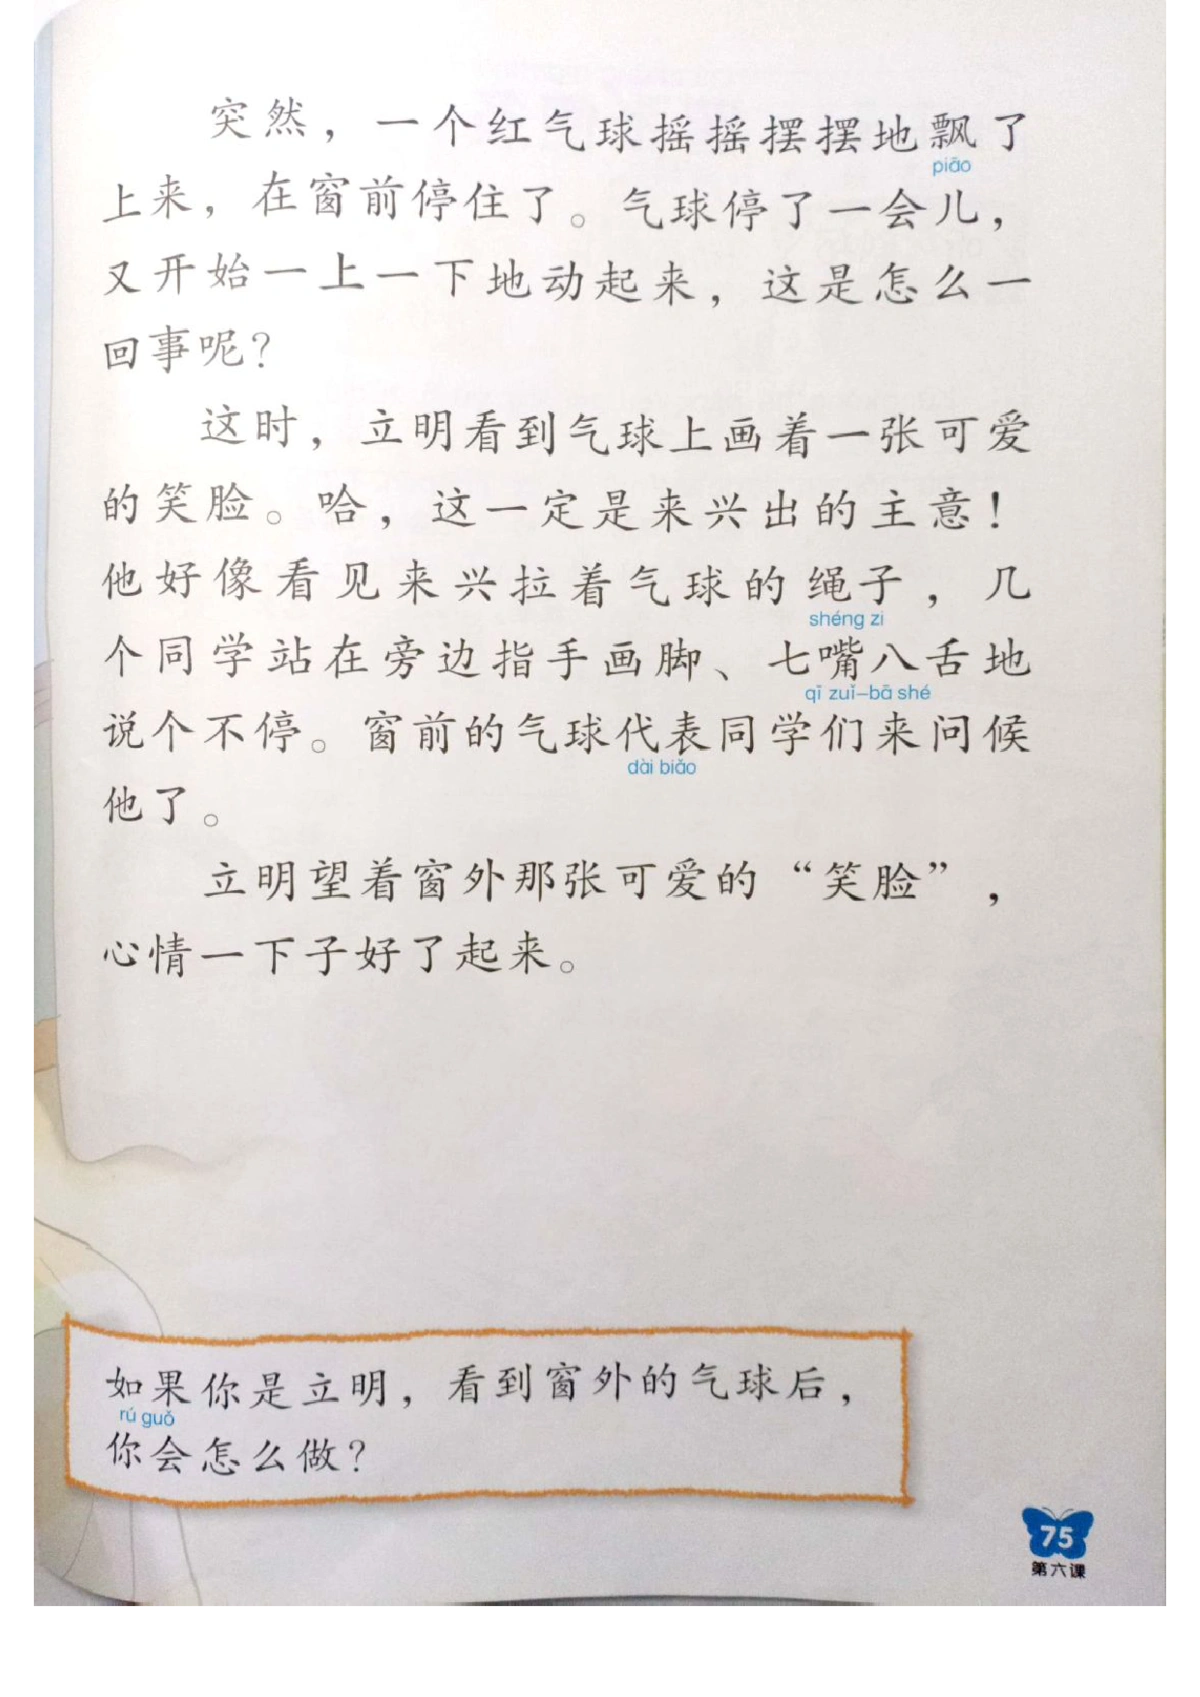 突然，一个红气球摇摇摆摆地飘了
piāo
上来，在窗前停住了。气球停了一会儿，
又开始一上一下地动起来，这是怎么一
回事呢？
这时，立明看到气球上画着一张可爱
的笑脸。哈，这一定是来兴出的主意！
他好像看见来兴拉着气球的绳子，几
shéng zi
个同学站在旁边指手画脚、七嘴八舌地
qī zuǐ–bā shé
说个不停。窗前的气球代表同学们来问候
dài biǎo
他了。
立明望着窗外那张可爱的“笑脸”，
心情一下子好了起来。
如果你是立明，看到窗外的气球后，
rú guǒ
你会怎么做？
75
第六课